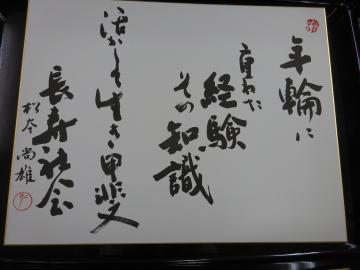 年輪に
重ねた
経験
その知識
活かして生き甲斐
長寿社会
松本尚雄